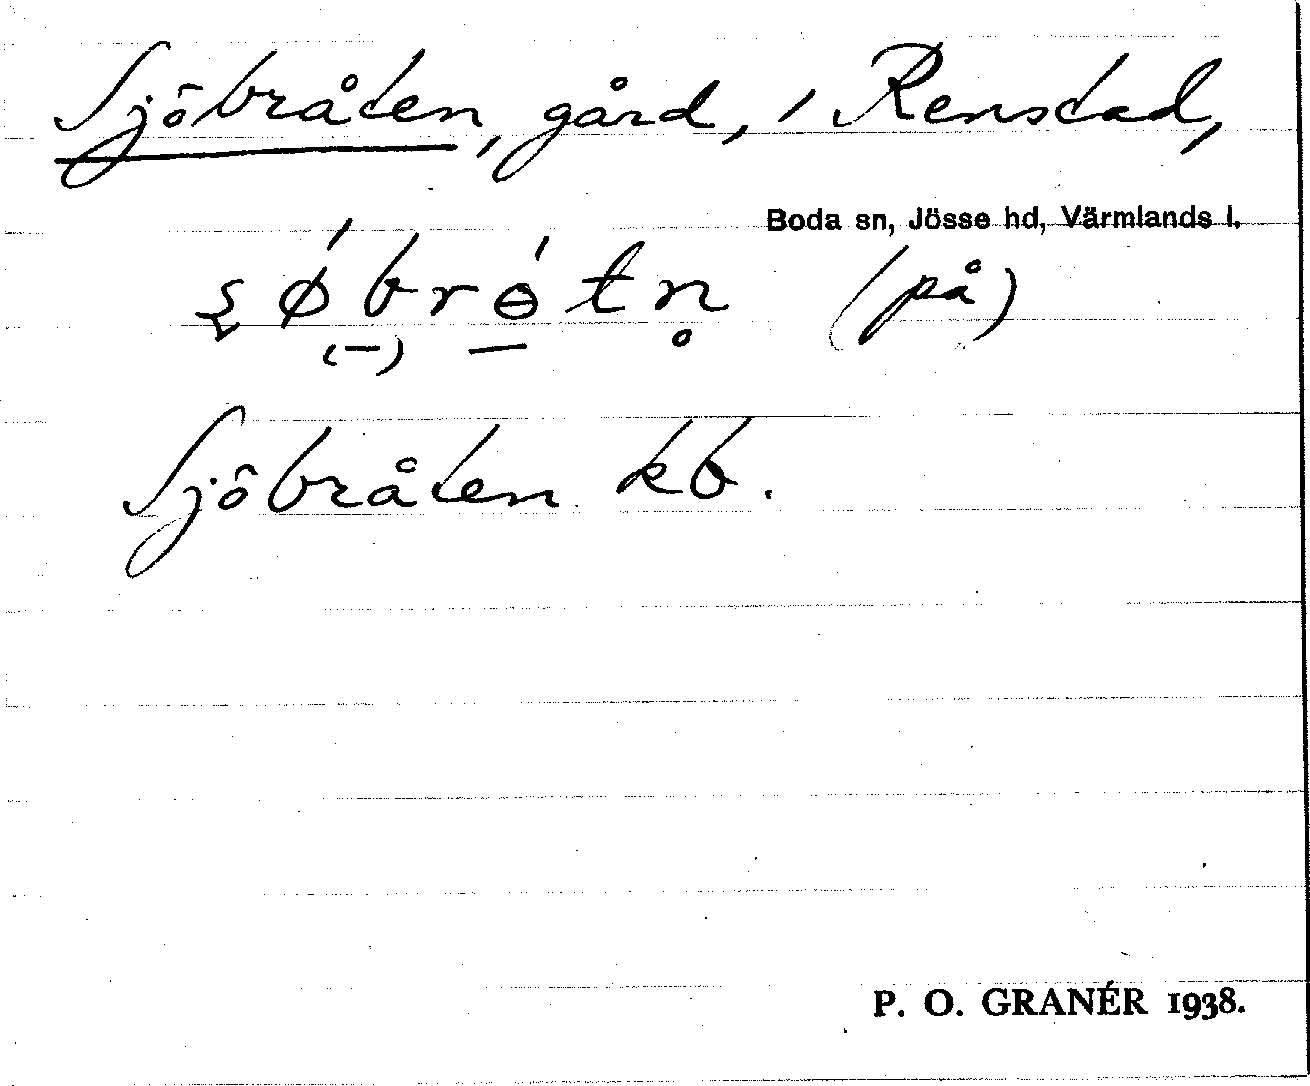 Sjöbråten, gård, i Renstad,
Boda sn, Jösse hd, Värmlands l.
(på)
Sjöbråten kb.
P. O. GRANÉR 1938.